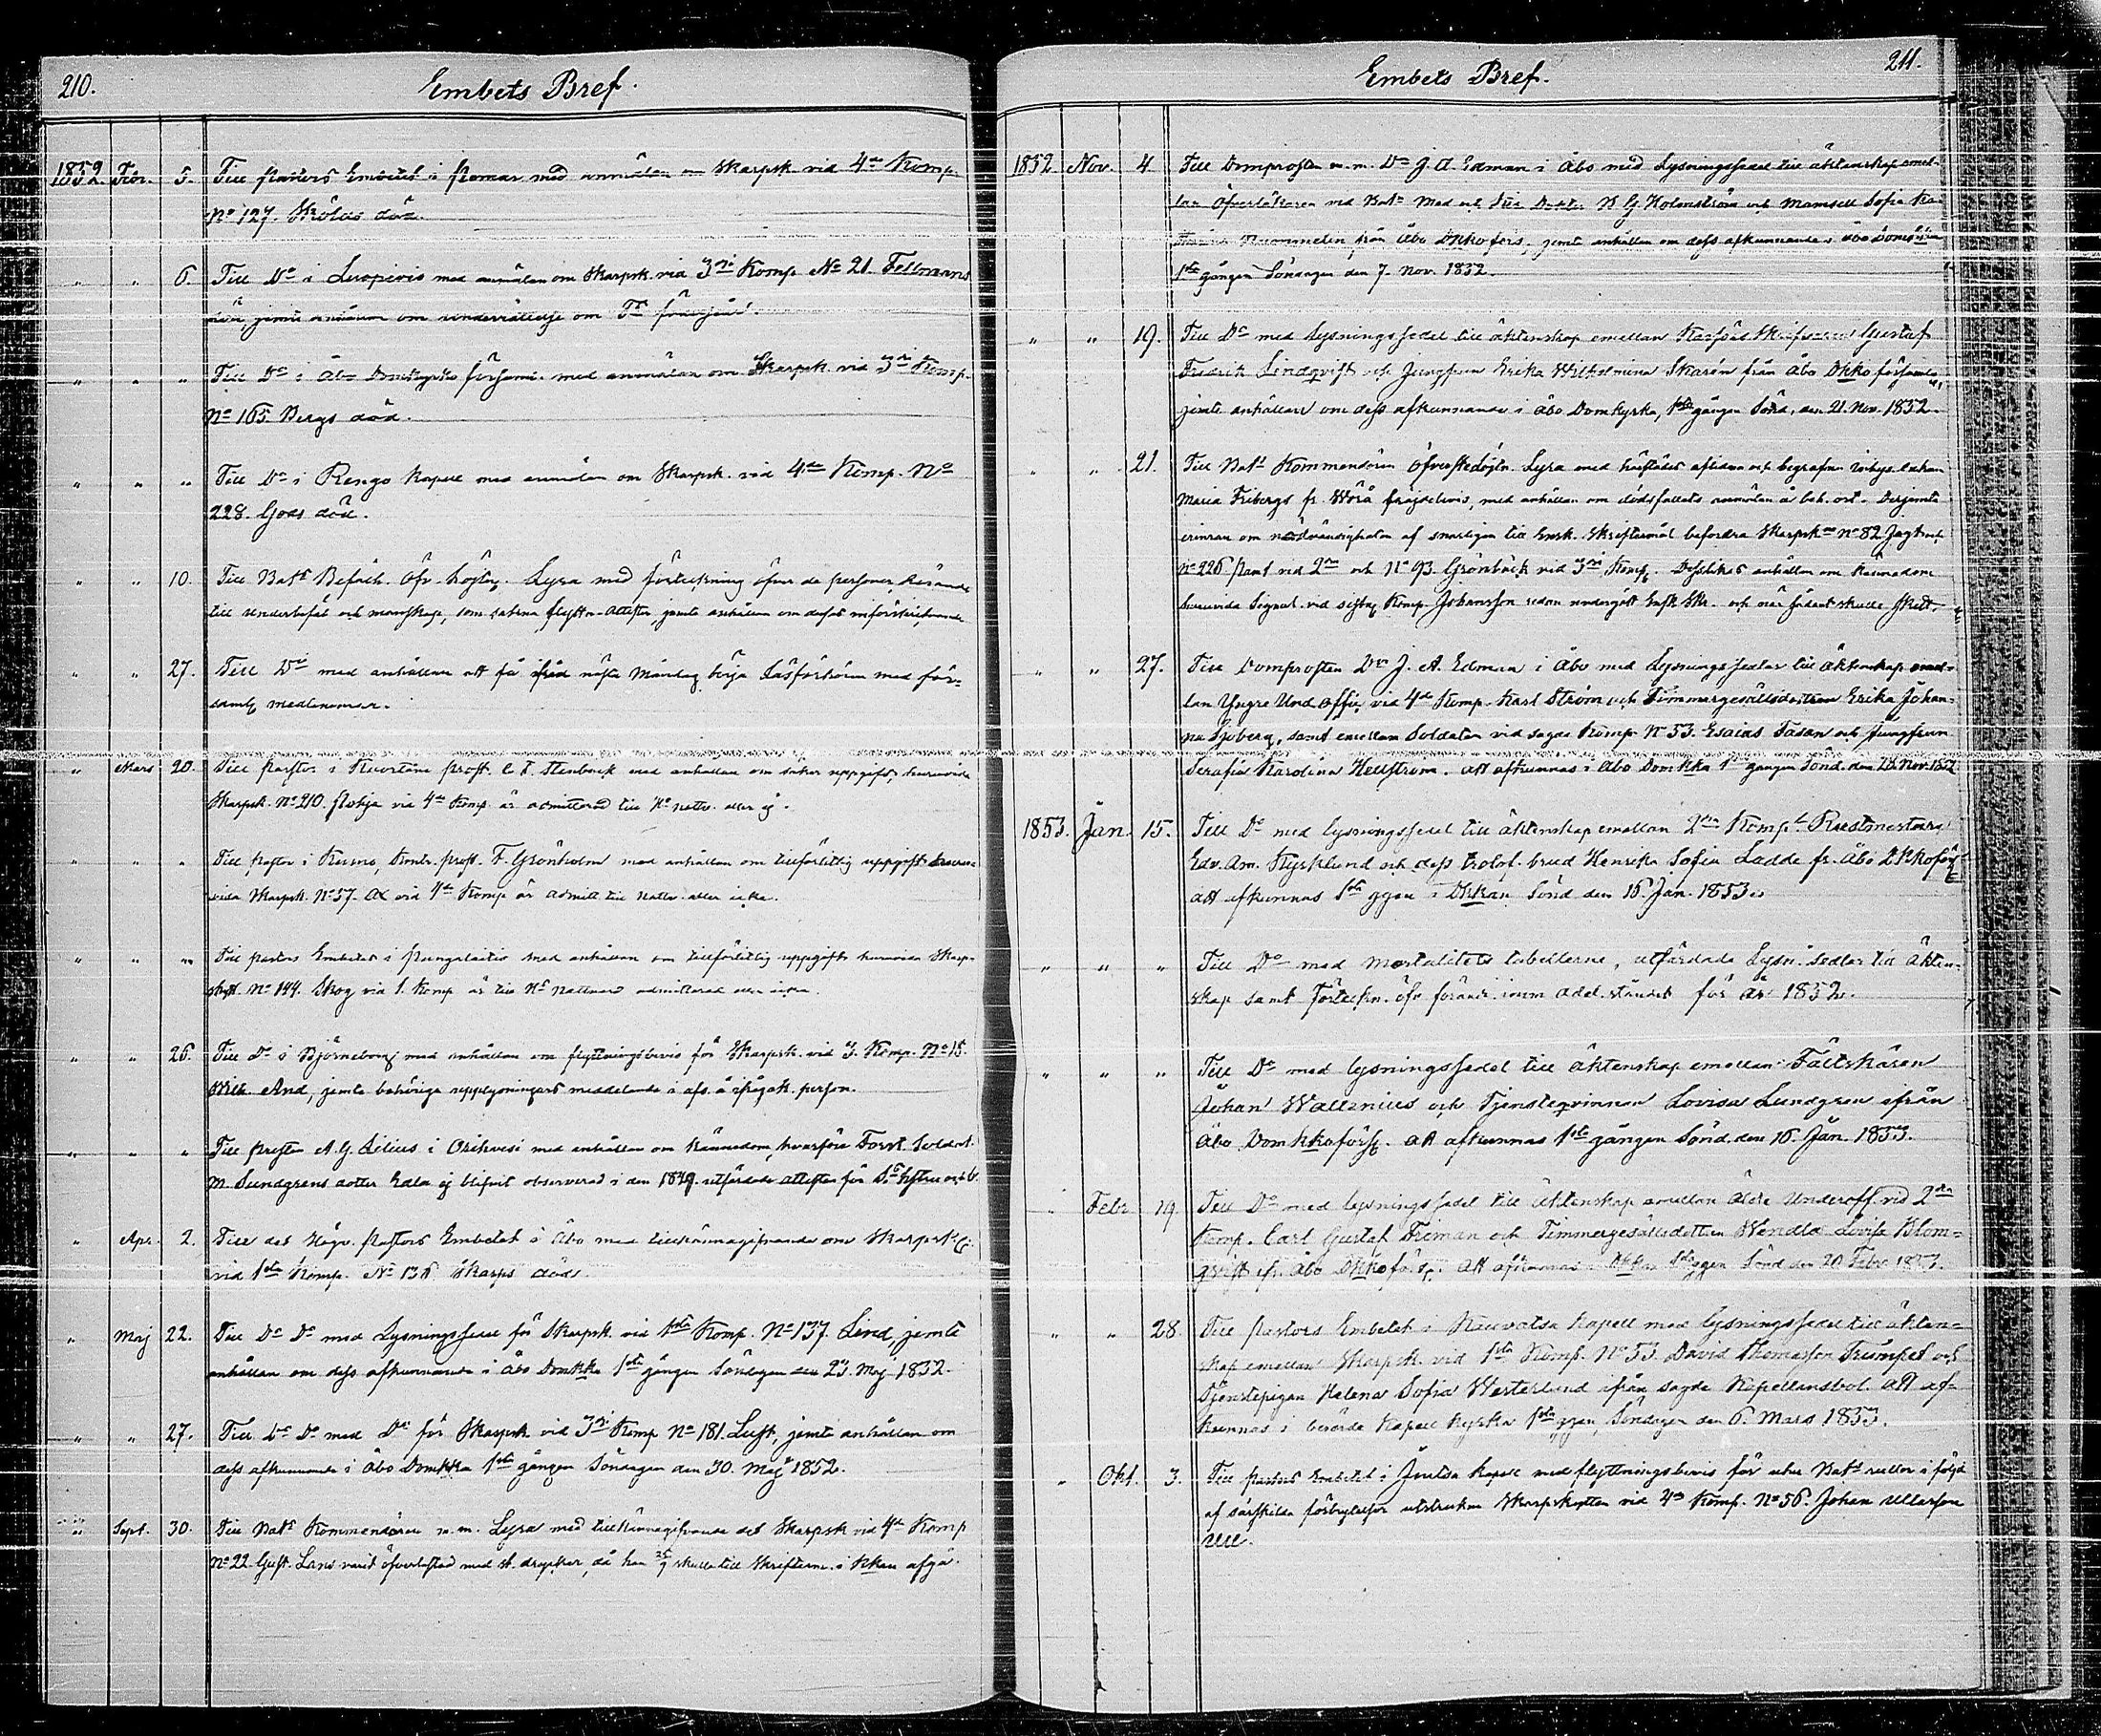 210.
Embets Bref.
1852. Febr. 5. Till pastors Embetet i Pemar med anmälan om Skarpsk. vid 4de Komp.
No 127. Skölds död.
" " 6. Till Do i Luopiois med anmälan om Skarpsk. vid 3dje Komp No 21. Fellmans
död, jemte anhållan om underrättelse om
" " " Till Do i Åbo Domkyrko församl. med anmälan om Skarpsk. vid 3dje Komp.
No 165. Bergs död.
" " " Till Do i Rengo kapell med anmälan om Skarpsk. vid 4de Komp. No
228. Gods död.
" " 10. Till Bats Befälh. Öfv. Lyra med förteckning öfver de personer, hörande
till underbefäl och manskap, som sakna flyttn. attester, jemte anhållan om deras
" " 27. Till Do med anhållan att få nästa Måndag börja Läsförhören med för-
saml. medlemmar.
" Mars 20. Till pastor i Kuortane prost. C. F. Stenbäck med anhållan om säker uppgift, huruvida
Skarpsk. No 210. vid 4de Komp. är admitterad till Hs nattv. eller ej.
" " " Till pastor i prost. F. Grönholm med anhållan om tillförlitlig uppgift huru-
vida Skarpsk. No 57. Al vid 4de Komp är admitt. till Nattv. eller icke.
" " " Till pastors Embetet i Pungalaitio med anhållan om tillförlitlig uppgift huruvida Skarp-
skytt. No 144. Skog vid 1. Komp är till Hs Nattvard admitterad eller icke.
" " 26. Till Do i Björneborg med anhållan om flyttningsbevis för Skarpsk. vid 3. Komp. No 15.
And, jemte behöriga upplysningars meddelande i afs. å ifrågak. person.
" " " Till prosten A. G. Lilius i Orihvesi med anhållan om kännedom, hvarföre Soldat.
M. Sundgrens dotter Eda ej blifvit observerad i den 1849. utfärdade attesten för
" Apr. 2. Till det Högv. Pastors Embetet i Åbo med tillkännagifvande om Skarpsk.
vid 1sta Komp. No 136 Skarps död.
" Maj 22. Till Do Do med Lysningssedel för Skarpsk. vid 1sta Komp. No 137. Lind, jemte
anhållan om dess afkunnande i Åbo Domkka 1sta gången Söndagen den 23. Maj 1852.
" " 27. Till Do Do med Do för Skarpsk vid 3dje Komp No 181. Luft, jemte anhållan om
dess afkunnande i Åbo Domkka 1sta gången Söndagen den 30. Maj 1852.
" Sept. 30. Till Bats Kommendören m. m. Lyra med tillkännagifvande det Skarpsk vid 4de Komp
No 22 Gust. Lans varit öfverlastad med st. drycker, då han skulle till Skriften i Kkan afgå.
211.
Embets Bref.
1852. Nov. 4. Till Domprosten m. m. Dr J. A. Edman i Åbo med Lysningssedel till äktenskap emel-
lan Öfverläkaren vid Batn Med. och K. G. Holmström och Mamsell Sofia Ka-
Rummelin från Åbo Dkkoförs., jemte anhållan om dess afkunnande i Åbo
1sta gången Söndagen den 7. Nov. 1852.
" " 19. Till Do med Lysningssedel till äktenskap emellan Gustaf
Fredrik Lindqvist och Jungfrun Erika Wilhelmina Skarén från Åbo Dkkoförsaml.,
jemte anhållan om dess afkunnande i Åbo Domkyrka, 1sta gången Sönd. den 21. Nov. 1852.
" " 21. Till Bats Kommendören Öfverste Lyra med härstädes aflidna och begrafna
Maria Fribergs fr. Wörå frejdebevis, med anhållan om dödsfallets anmälan å beh. ort. Derjemte
erinran om nödvändigheten af snarligen till Ensk. Skriftermål befordra Skarpsk. No 82 Jagt och
No 226 Pant vid 2dra och No 93. Grönbäck vid 3dje Komp. Desslikes anhållan om kännedom
huruvida Signal. vid sistn. Komp. Johansson redan undergått Ensk. Skr. och när sådant skulle skett.
" " 27. Till Domprosten Dr J. A. Edman i Åbo med Lysningssedlar till Äktenskap emel-
lan Yngre Und.offic. vid 4de Komp. Karl Ström och Timmergesällsdottren Erika Johan-
na Sjöberg, samt emellan Soldaten vid sagde Komp. No 53. Esaias Tasan och Jungfrun
Serafia Karolina Hellström. att afkunnas i Åbo Domkka 1sta gången Sönd. den 28. Nov. 1852.
1853. Jan. 15. Till Do med lysningssedel till äktenskap emellan 2dra Komp.s Rustmestare
Edv. Am. Kyrklund och dess trolof. brud Henrika Sofia Ladde fr. Åbo Dkkoförs.
att afkunnas 1sta ggen i Dkkan Sönd den 16. Jan. 1853.
" " " Till Do med Mortalitets tabellerne, utfärdade Lysn. sedlar till Äkten-
skap samt Förteckn. öfv. förändr. inom Adel. ståndet för år 1852.
" " " Till Do med lysningssedel till äktenskap emellan Fältskären
Johan Wallenius och Tjensteqvinnan Lovisa Lundgren ifrån
Åbo Domkkoförs. att afkunnas 1sta gången Sönd. den 16. Jan. 1853.
" Febr. 19. Till Do med lysningssedel till Äktenskap emellan Äldre Underoff. vid 2dra
Komp. Carl Gustaf Friman och Timmergesällsdottren Wendla Lovisa Blom-
qvist ifr. Åbo Dkkoförs. Att afkunnas i Dkkan 1sta ggen Sönd den 20 Febr. 1853.
" " 28. Till pastors Embetet i Kauvatsa Kapell med lysningssedel till äkten-
skap emellan Skarpsk. vid 1sta Komp. No 53. David Thomasson Trumpet och
Tjenstepigan Helena Sofia Westerlund ifrån sagde Kapellansbol. att af-
kunnas i berörde Kapell Kyrka 1sta ggen Söndagen den 6. Mars 1853.
" Okt. 3. Till pastors Embetet i Joutsa kapell med flyttningsbevis för utur Bats rullor i följd
af särskilda förbrytelser utstruken Skarpskytten vid 4de Komp. No 56. Johan Ullasson
Ull.